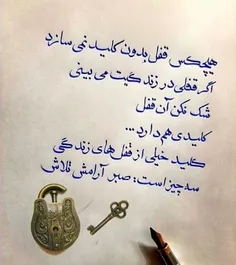 هیچکس قفل بدون کلید نمی سازد
اگر قفلی در زندگیت می بینی
شک نکن آن قفل
کلیدی هم دارد ...
کلید خیلی از قفل های زندگی
سه چیز است: صبر آرامش تلاش